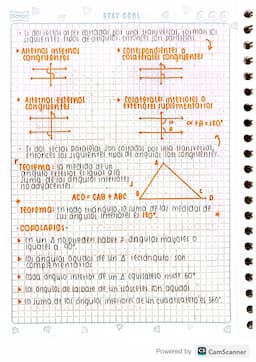 STAY COOL
• Si dos rectas al ser cortadas por una transversal, forman los
siguientes tipos de ángulos, entonces son paralelas.
• Alternos internos
congruentes
• Correspondientes o
colaterales congruentes
• Alternos externos
congruentes
• Colaterales interiores o
exteriores suplementarios
α+β=180°
• Si dos rectas paralelas son cortadas por una transversal,
entonces los siguientes tipos de ángulos son congruentes.
Teorema: La medida de un
ángulo externo es igual a la
suma de los ángulos internos
no adyacentes
ACD = CAB + ABC
A
B
C
D
Teorema: En todo triángulo, la suma de las medidas de
los ángulos interiores es 180°.
COROLARIOS:
En un Δ no pueden haber 2 ángulos mayores o
iguales a 90°.
Los ángulos agudos de un Δ rectángulo son
complementarios
Cada ángulo interior de un Δ equilátero mide 60°
Los ángulos de la base de un isósceles son agudos.
La suma de los ángulos interiores de un cuadrilátero es 360°.
Powered by CS CamScanner